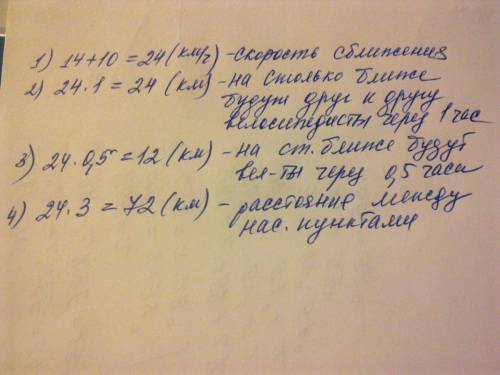 1) 14+10 = 24 (км/ч) - скорость сближения
2) 24 · 1 = 24 (км) - на столько ближе
будут друг к другу
велосипедисты через 1 час
3) 24 · 0,5 = 12 (км) - на ст. ближе будут
вел-ты через 0,5 часа
4) 24 · 3 = 72 (км) - расстояние между
нас. пунктами